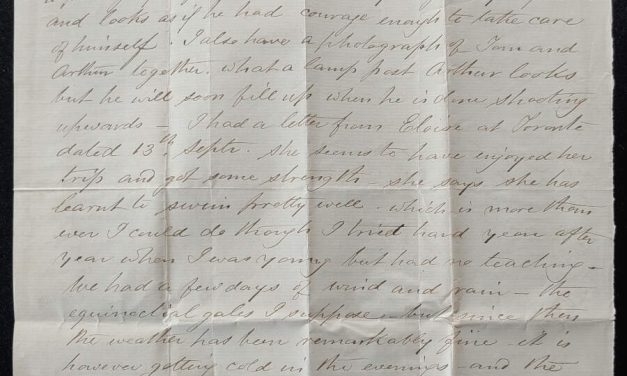 and looks as if he had courage enough to take care
of himself. I also have a photograph of Tom and
Arthur together. what a lamp post Arthur looks
but he will soon fill up when he is done shooting
upwards - I had a letter from Eloise at Toronto
dated 13th Septr. she seems to have enjoyed her
trip and got some strength - she says she has
learnt to swim pretty well. which is more than
ever I could do though I tried hard year after
year when I was young but had no teaching -
We had a few days of wind and rain - the
equinoctial gales I suppose - but since then
the weather has been remarkably fine - it is
however getting cold in the evenings - and the